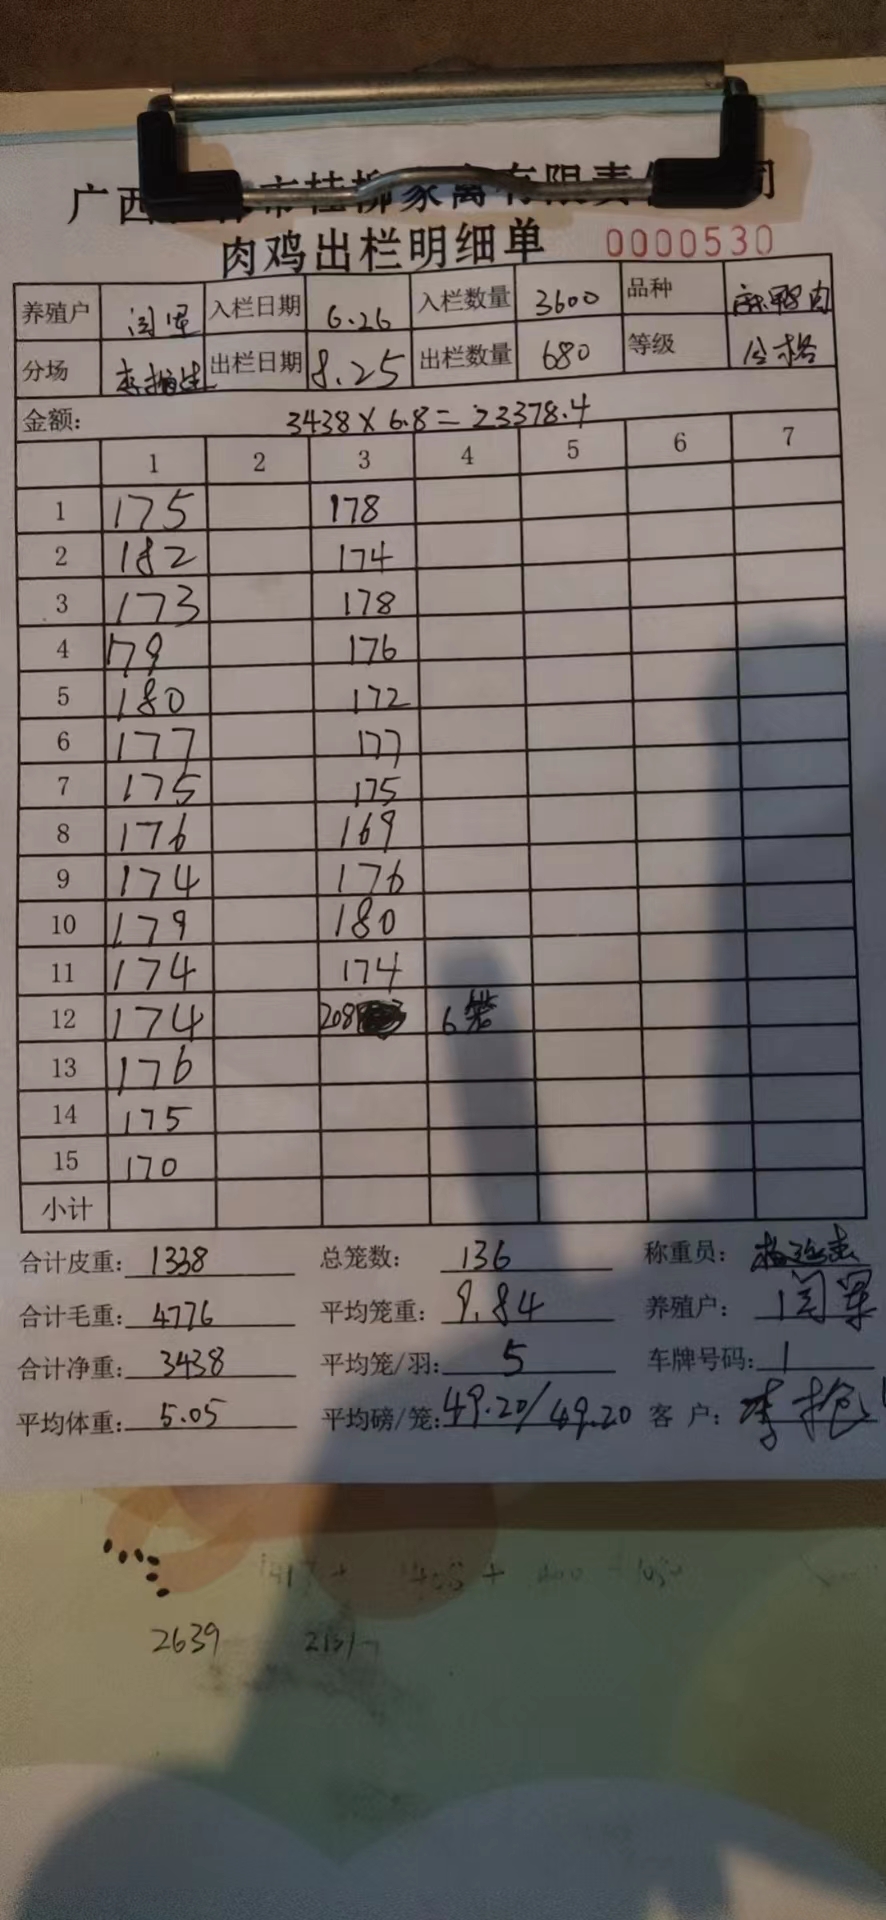 广西 市桂柳家禽有限责 司
肉鸡出栏明细单 0000530
养殖户 闫军 入栏日期 6.26 入栏数量 3600 品种 麻鸭肉
分场 出栏日期 8.25 出栏数量 680 等级 合格
金额: 3438×6.8=23378.4
1 2 3 4 5 6 7
1 175 178
2 182 174
3 173 178
4 179 176
5 180 172
6 177 177
7 175 175
8 176 169
9 174 176
10 179 180
11 174 174
12 174 208 6笼
13 176
14 175
15 170
小计
合计皮重: 1338 总笼数: 136 称重员:
合计毛重: 4776 平均笼重: 9.84 养殖户: 闫军
合计净重: 3438 平均笼/羽: 5 车牌号码: 1
平均体重: 5.05 平均磅/笼: 49.20/49.20 客 户: 李
2639